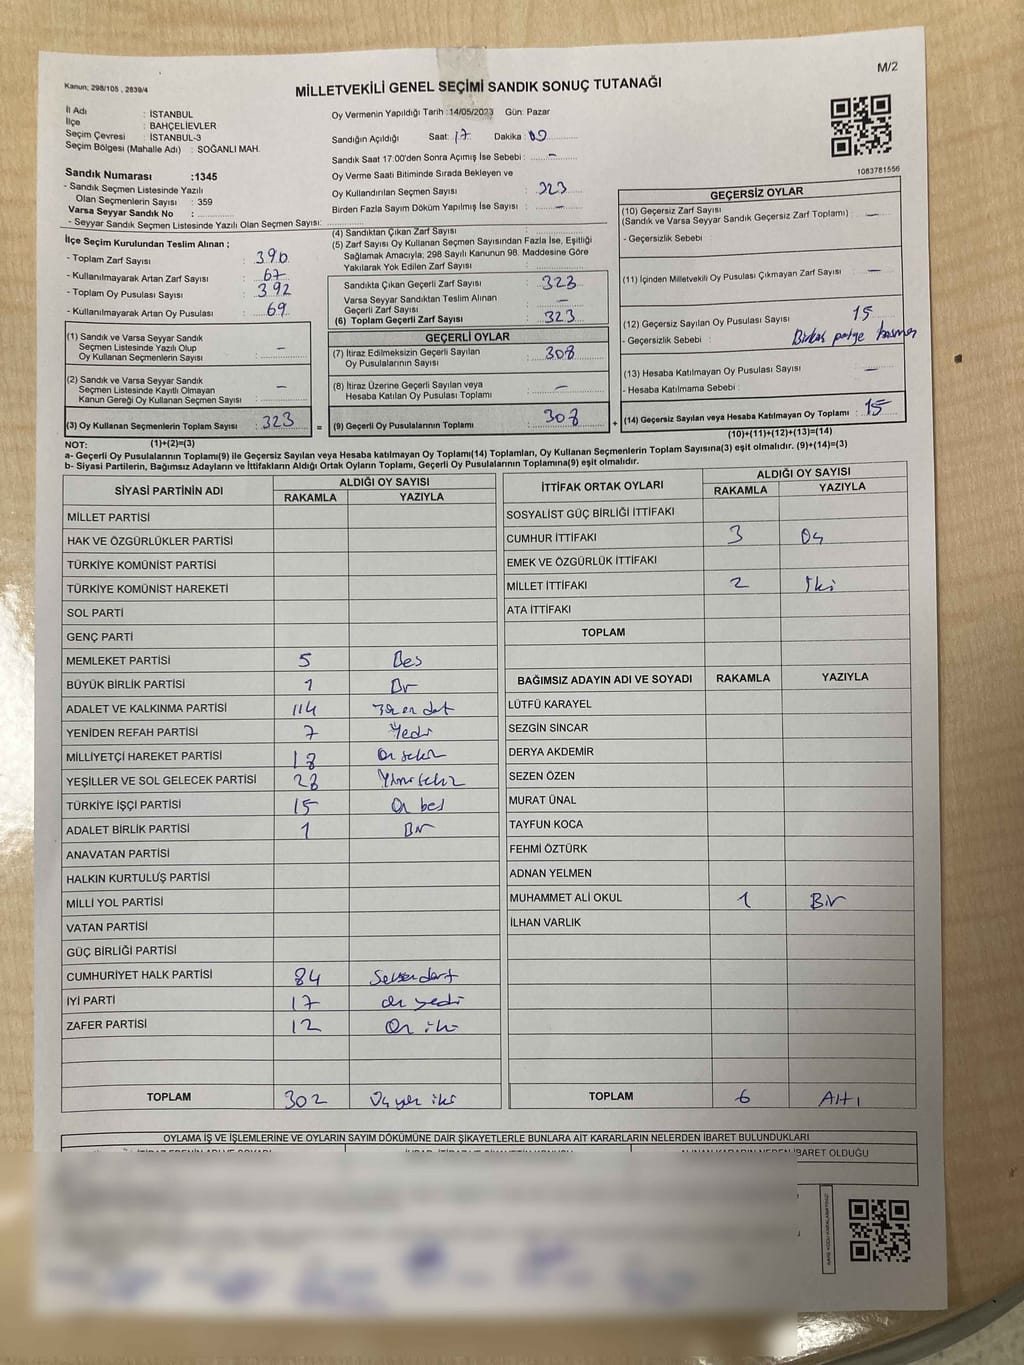 M/2
Kanun, 298/105 , 2839/4
MİLLETVEKİLİ GENEL SEÇİMİ SANDIK SONUÇ TUTANAĞI
İl Adı : İSTANBUL
İlçe : BAHÇELİEVLER
Seçim Çevresi : İSTANBUL-3
Seçim Bölgesi (Mahalle Adı) : SOĞANLI MAH.
Sandık Numarası :1345
- Sandık Seçmen Listesinde Yazılı
Olan Seçmenlerin Sayısı : 359
Varsa Seyyar Sandık No :
- Seyyar Sandık Seçmen Listesinde Yazılı Olan Seçmen Sayısı:
Oy Vermenin Yapıldığı Tarih :14/05/2023 Gün: Pazar
Sandığın Açıldığı Saat: 17 Dakika: 00
Sandık Saat 17:00'den Sonra Açımış İse Sebebi : -
Oy Verme Saati Bitiminde Sırada Bekleyen ve
Oy Kullandırılan Seçmen Sayısı : 323
Birden Fazla Sayım Döküm Yapılmış İse Sayısı : -
1083781556
İlçe Seçim Kurulundan Teslim Alınan ;
- Toplam Zarf Sayısı : 390
- Kullanılmayarak Artan Zarf Sayısı : 67
- Toplam Oy Pusulası Sayısı : 392
- Kullanılmayarak Artan Oy Pusulası : 69
(1) Sandık ve Varsa Seyyar Sandık
Seçmen Listesinde Yazılı Olup
Oy Kullanan Seçmenlerin Sayısı : -
(2) Sandık ve Varsa Seyyar Sandık
Seçmen Listesinde Kayıtlı Olmayan
Kanun Gereği Oy Kullanan Seçmen Sayısı : -
(3) Oy Kullanan Seçmenlerin Toplam Sayısı : 323
(4) Sandıktan Çıkan Zarf Sayısı :
(5) Zarf Sayısı Oy Kullanan Seçmen Sayısından Fazla İse, Eşitliği
Sağlamak Amacıyla, 298 Sayılı Kanunun 98. Maddesine Göre
Yakılarak Yok Edilen Zarf Sayısı :
Sandıkta Çıkan Geçerli Zarf Sayısı : 323
Varsa Seyyar Sandıktan Teslim Alınan
Geçerli Zarf Sayısı : -
(6) Toplam Geçerli Zarf Sayısı : 323
GEÇERLİ OYLAR
(7) İtiraz Edilmeksizin Geçerli Sayılan
Oy Pusulalarının Sayısı : 308
(8) İtiraz Üzerine Geçerli Sayılan veya
Hesaba Katılan Oy Pusulası Toplamı : -
= (9) Geçerli Oy Pusulalarının Toplamı : 308
GEÇERSİZ OYLAR
(10) Geçersiz Zarf Sayısı
(Sandık ve Varsa Seyyar Sandık Geçersiz Zarf Toplamı) : -
- Geçersizlik Sebebi :
(11) İçinden Milletvekili Oy Pusulası Çıkmayan Zarf Sayısı : -
(12) Geçersiz Sayılan Oy Pusulası Sayısı : 15
- Geçersizlik Sebebi :
(13) Hesaba Katılmayan Oy Pusulası Sayısı : -
- Hesaba Katılmama Sebebi :
+ (14) Geçersiz Sayılan veya Hesaba Katılmayan Oy Toplamı : 15
NOT: (1)+(2)=(3)
(10)+(11)+(12)+(13)=(14)
a- Geçerli Oy Pusulalarının Toplamı(9) ile Geçersiz Sayılan veya Hesaba katılmayan Oy Toplamı(14) Toplamları, Oy Kullanan Seçmenlerin Toplam Sayısına(3) eşit olmalıdır. (9)+(14)=(3)
b- Siyasi Partilerin, Bağımsız Adayların ve İttifakların Aldığı Ortak Oyların Toplamı, Geçerli Oy Pusulalarının Toplamına(9) eşit olmalıdır.
SİYASİ PARTİNİN ADI ALDIĞI OY SAYISI
RAKAMLA YAZIYLA
MİLLET PARTİSİ
HAK VE ÖZGÜRLÜKLER PARTİSİ
TÜRKİYE KOMÜNİST PARTİSİ
TÜRKİYE KOMÜNİST HAREKETİ
SOL PARTİ
GENÇ PARTİ
MEMLEKET PARTİSİ 5 Beş
BÜYÜK BİRLİK PARTİSİ 1 Bir
ADALET VE KALKINMA PARTİSİ 114
YENİDEN REFAH PARTİSİ 7 Yedi
MİLLİYETÇİ HAREKET PARTİSİ 18 On sekiz
YEŞİLLER VE SOL GELECEK PARTİSİ 28 Yirmi sekiz
TÜRKİYE İŞÇİ PARTİSİ 15 On beş
ADALET BİRLİK PARTİSİ 1 Bir
ANAVATAN PARTİSİ
HALKIN KURTULUŞ PARTİSİ
MİLLİ YOL PARTİSİ
VATAN PARTİSİ
GÜÇ BİRLİĞİ PARTİSİ
CUMHURİYET HALK PARTİSİ 84 Seksen dört
İYİ PARTİ 17 On yedi
ZAFER PARTİSİ 12 On iki
TOPLAM 302 Üç yüz iki
İTTİFAK ORTAK OYLARI ALDIĞI OY SAYISI
RAKAMLA YAZIYLA
SOSYALİST GÜÇ BİRLİĞİ İTTİFAKI
CUMHUR İTTİFAKI 3 Üç
EMEK VE ÖZGÜRLÜK İTTİFAKI
MİLLET İTTİFAKI 2 İki
ATA İTTİFAKI
TOPLAM
BAĞIMSIZ ADAYIN ADI VE SOYADI RAKAMLA YAZIYLA
LÜTFÜ KARAYEL
SEZGİN SİNCAR
DERYA AKDEMİR
SEZEN ÖZEN
MURAT ÜNAL
TAYFUN KOCA
FEHMİ ÖZTÜRK
ADNAN YELMEN
MUHAMMET ALİ OKUL 1 Bir
İLHAN VARLIK
TOPLAM 6 Altı
OYLAMA İŞ VE İŞLEMLERİNE VE OYLARIN SAYIM DÖKÜMÜNE DAİR ŞİKAYETLERLE BUNLARA AİT KARARLARIN NELERDEN İBARET BULUNDUKLARI
İBARET OLDUĞU